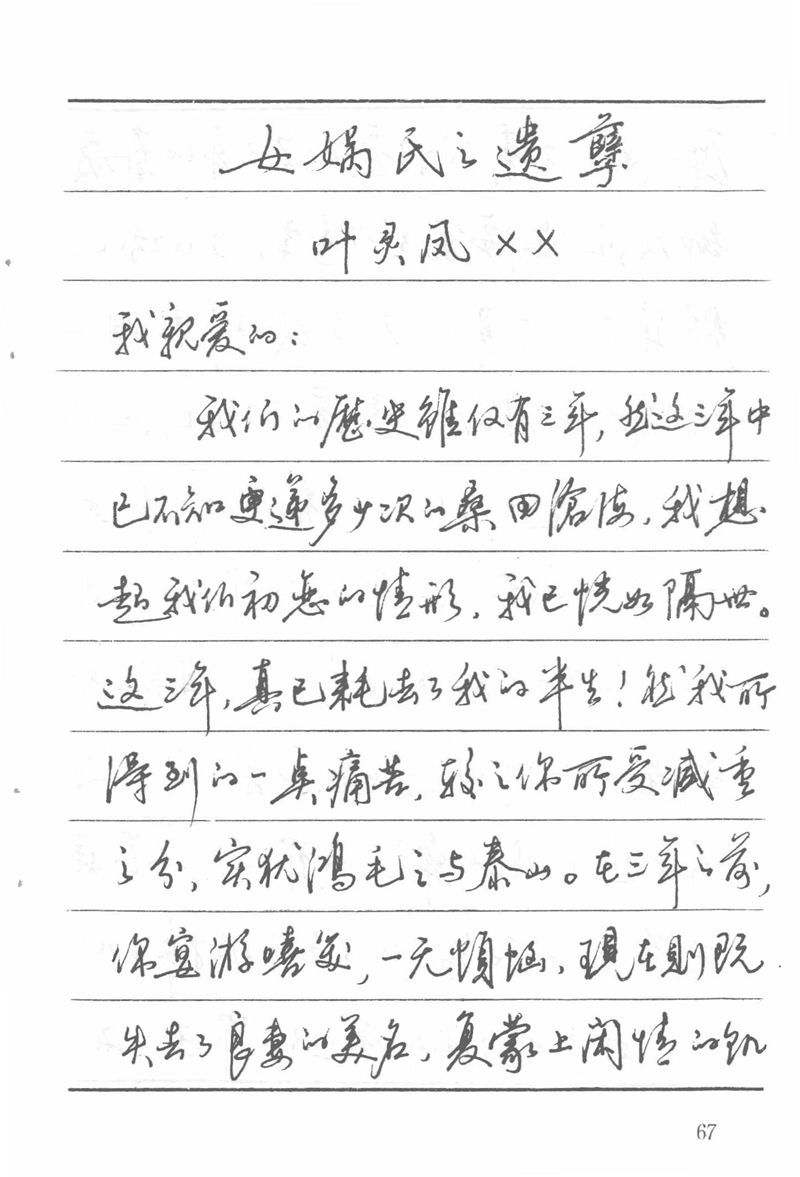 女娲氏之遗孽
叶灵凤××
我親爱的：
我们的歷史雖仅有三年，然这三年中
已不知更遞多少次的桑田滄海，我想
起我们初恋的情形，我已恍如隔世。
这三年，真已耗去了我的半生！然我所
得到的一点痛苦，较之你所受
之分，实犹鴻毛之与泰山。在三年之前，
你宴游嘻笑，一无煩恼，現在則既
失去了良妻的美名，复蒙上闲情的
67